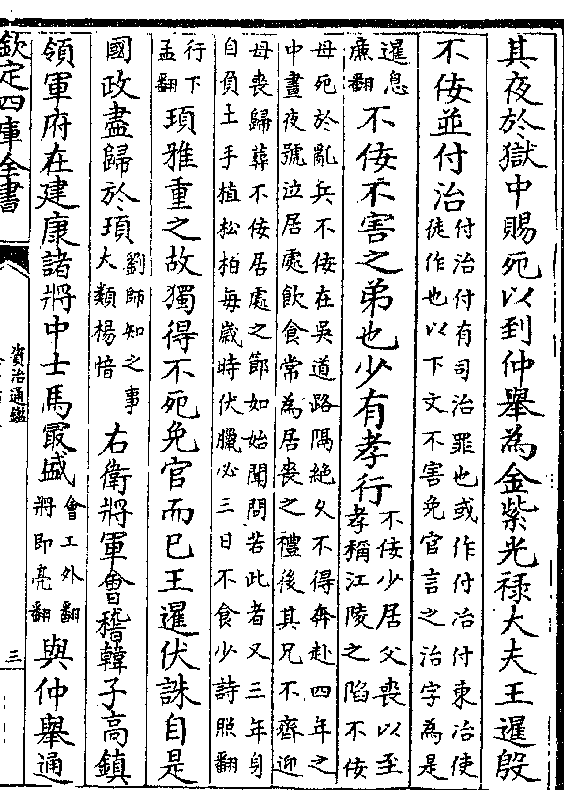 其夜於獄中賜死以到仲舉為金紫光祿大夫王暹殷
不佞並付治付治付有司治罪也或作付冶付東冶使
徒作也以下文不害免官言之治字為是
暹息
廉翻不佞不害之弟也少有孝行不佞少居父喪以至
孝稱江陵之陷不佞
母死於亂兵不佞在吳道路隔絶久不得奔赴四年之
中晝夜號泣居處飲食常為居喪之禮後其兄不齊迎
母喪歸葬不佞居處之節如始聞問若此者又三年身
自負土手植松柏每歲時伏臘必三日不食少詩照翻
行下
孟翻頊雅重之故獨得不死免官而已王暹伏誅自是
國政盡歸於頊劉師知之事
大類楊愔右衛將軍會稽韓子高鎮
領軍府在建康諸將中士馬最盛會工外翻
將即亮翻與仲舉通
欽定四庫全書
資治通鑑
三